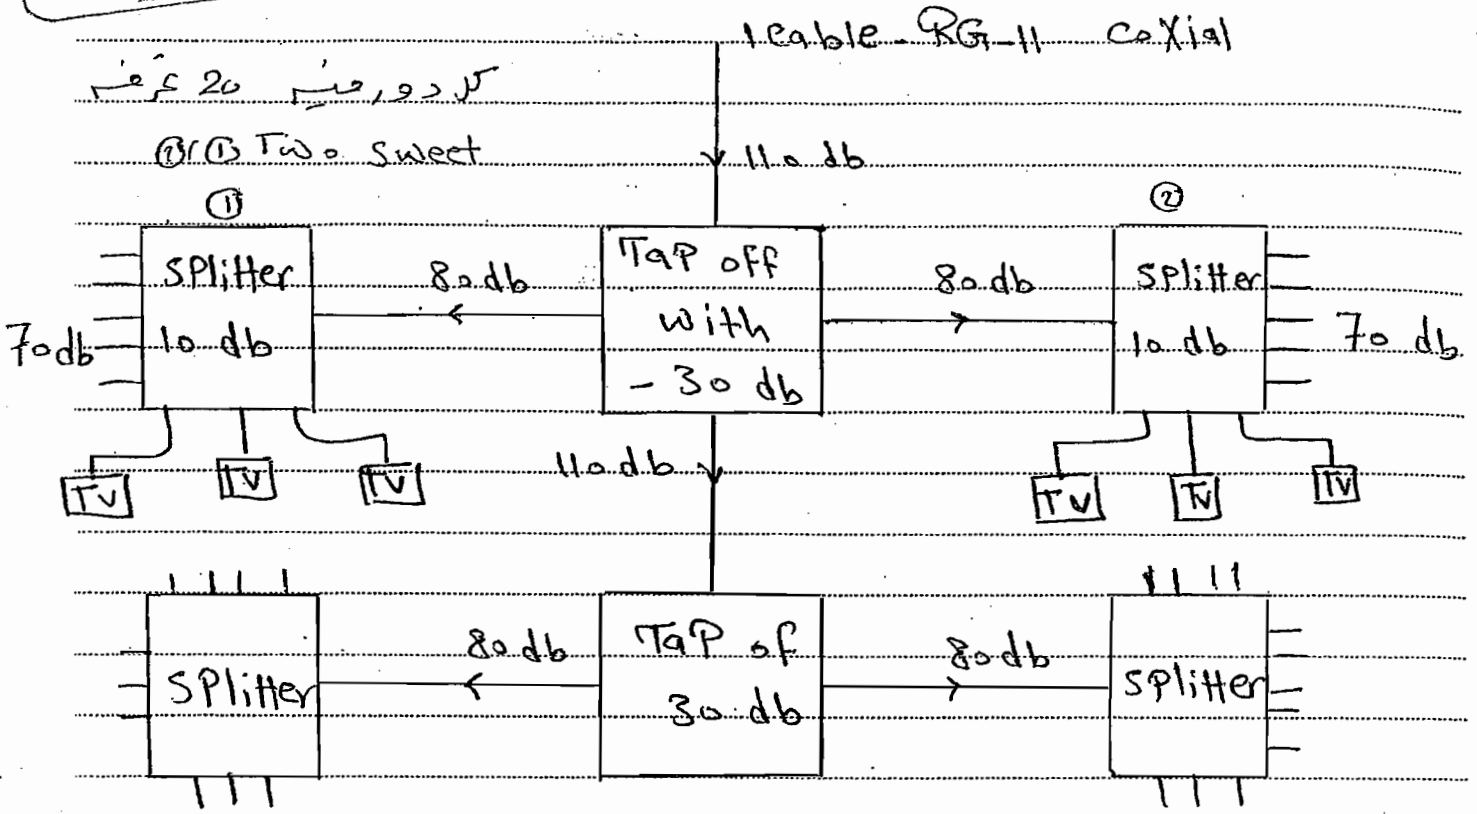 1 cable - RG-11 coXial
كل دور فيه 20 غرفه
①,② Two sweet
110 db
①
②
SPlitter
10 db
80 db
TaP off
with
- 30 db
80 db
SPlitter
10 db
70 db
70 db
TV
TV
TV
110 db
TV
TV
TV
SPlitter
80 db
TaP of
30 db
80 db
SPlitter